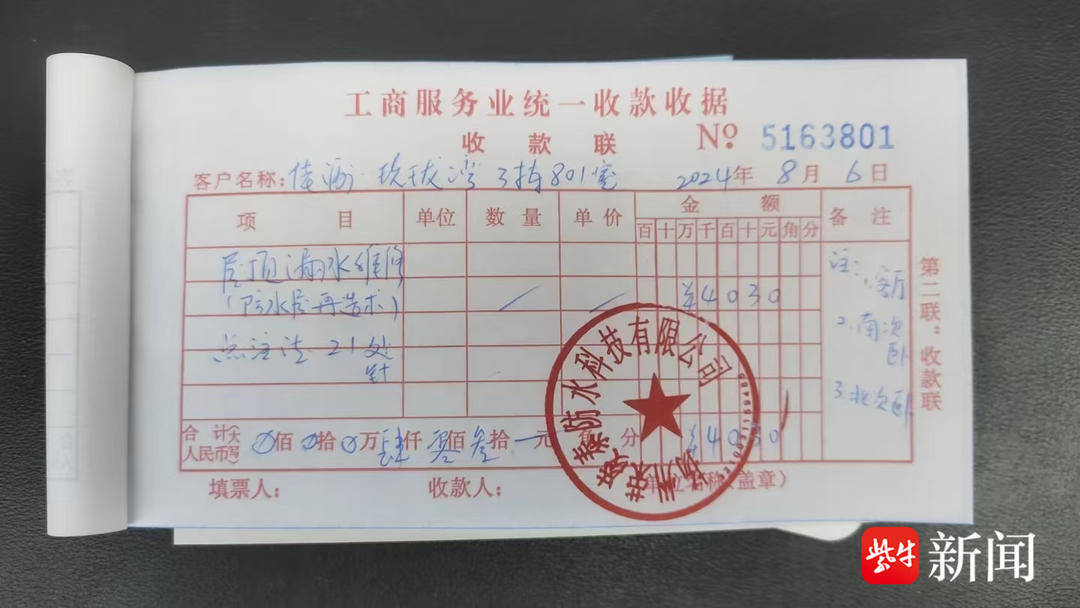 工商服务业统一收款收据
收款联 № 5163801
客户名称: 3栋801室 2024年 8月 6日
项目 单位 数量 单价 金额 备注
百十万千百十元角分
屋顶漏水维修 注:1.客厅
(防水层再造术) ¥4030
2.南次卧
点注法 21处 针
3.北次卧
合计人民币(大写) 0佰 0拾 0万 肆仟 零佰 叁拾 元 角 分 ¥4030
填票人: 收款人: 单位名称(盖章)
第二联:收款联
防水科技有限公司
紫牛新闻